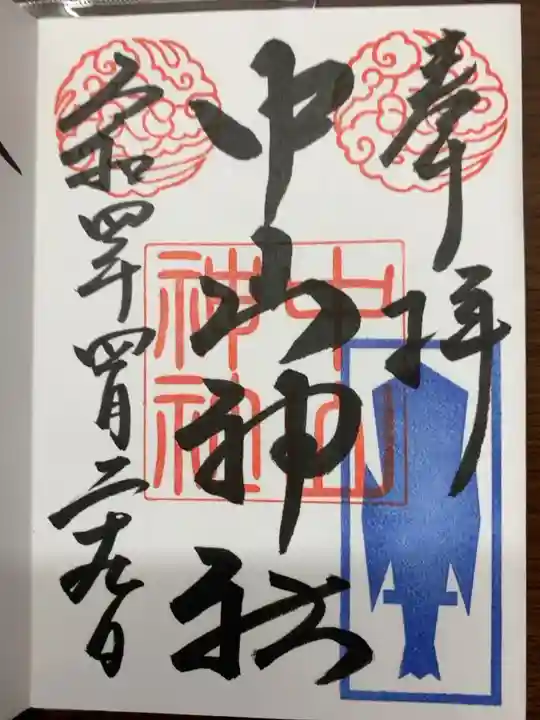 奉拝
中山神社
中山神社
令和四年四月二十九日